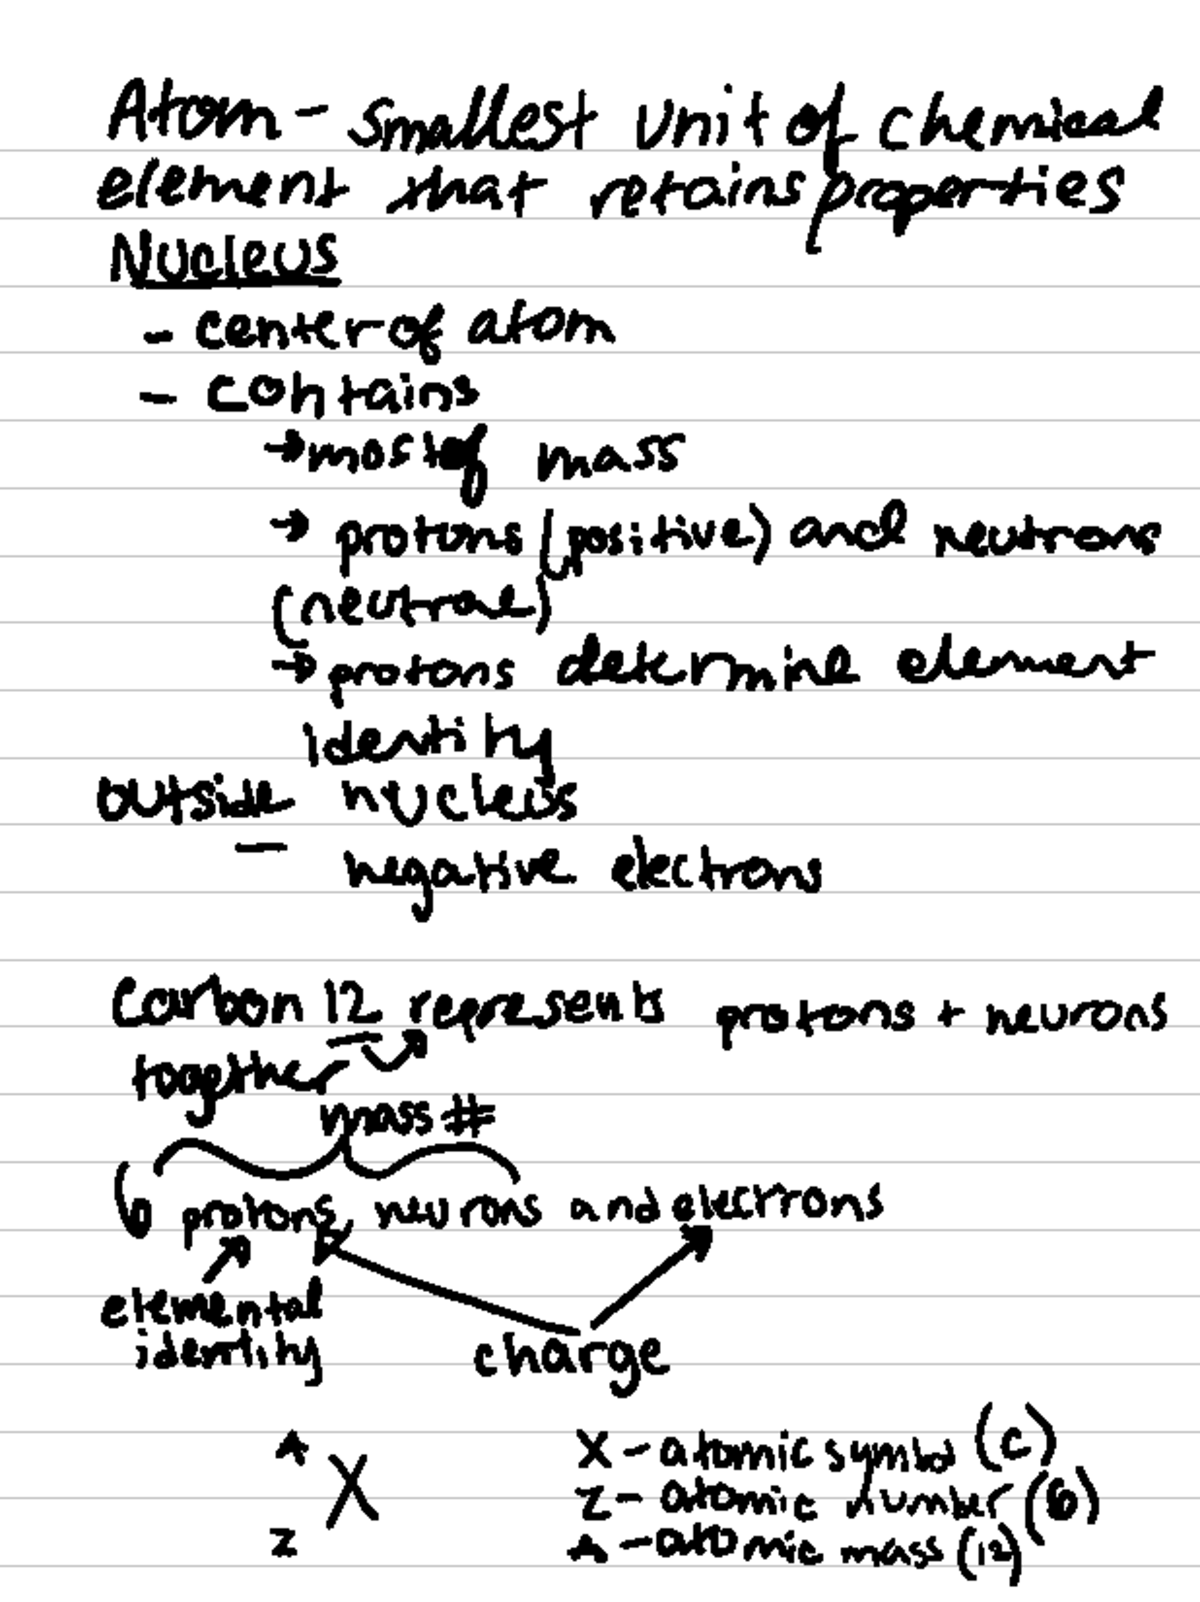 Atom - smallest unit of chemical
element that retains properties
Nucleus
- center of atom
- contains
→ most of mass
→ protons (positive) and neutrons
(neutral)
→ protons determine element
identity
outside nucleus
— negative electrons
Carbon 12 represents protons + neurons
together
mass #
6 protons, neurons and electrons
elemental
identity
charge
A
X
Z
X - atomic symbol (C)
Z - atomic number (6)
A - atomic mass (12)